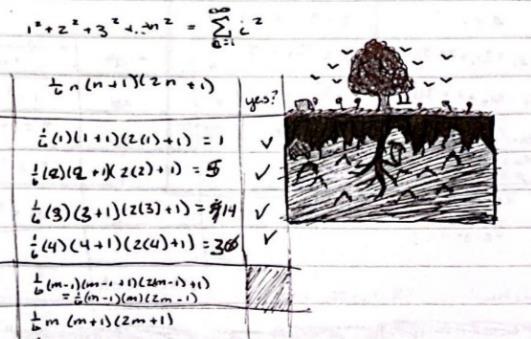 1² + 2² + 3² + ... n² = ∑ i²
1/6 n (n+1)(2n+1)
yes?
1/6 (1)(1+1)(2(1)+1) = 1 ✓
1/6 (2)(2+1)(2(2)+1) = 5 ✓
1/6 (3)(3+1)(2(3)+1) = 14 ✓
1/6 (4)(4+1)(2(4)+1) = 30 ✓
1/6 (m-1)(m-1+1)(2(m-1)+1)
= 1/6 (m-1)(m)(2m-1)
1/6 m (m+1)(2m+1)